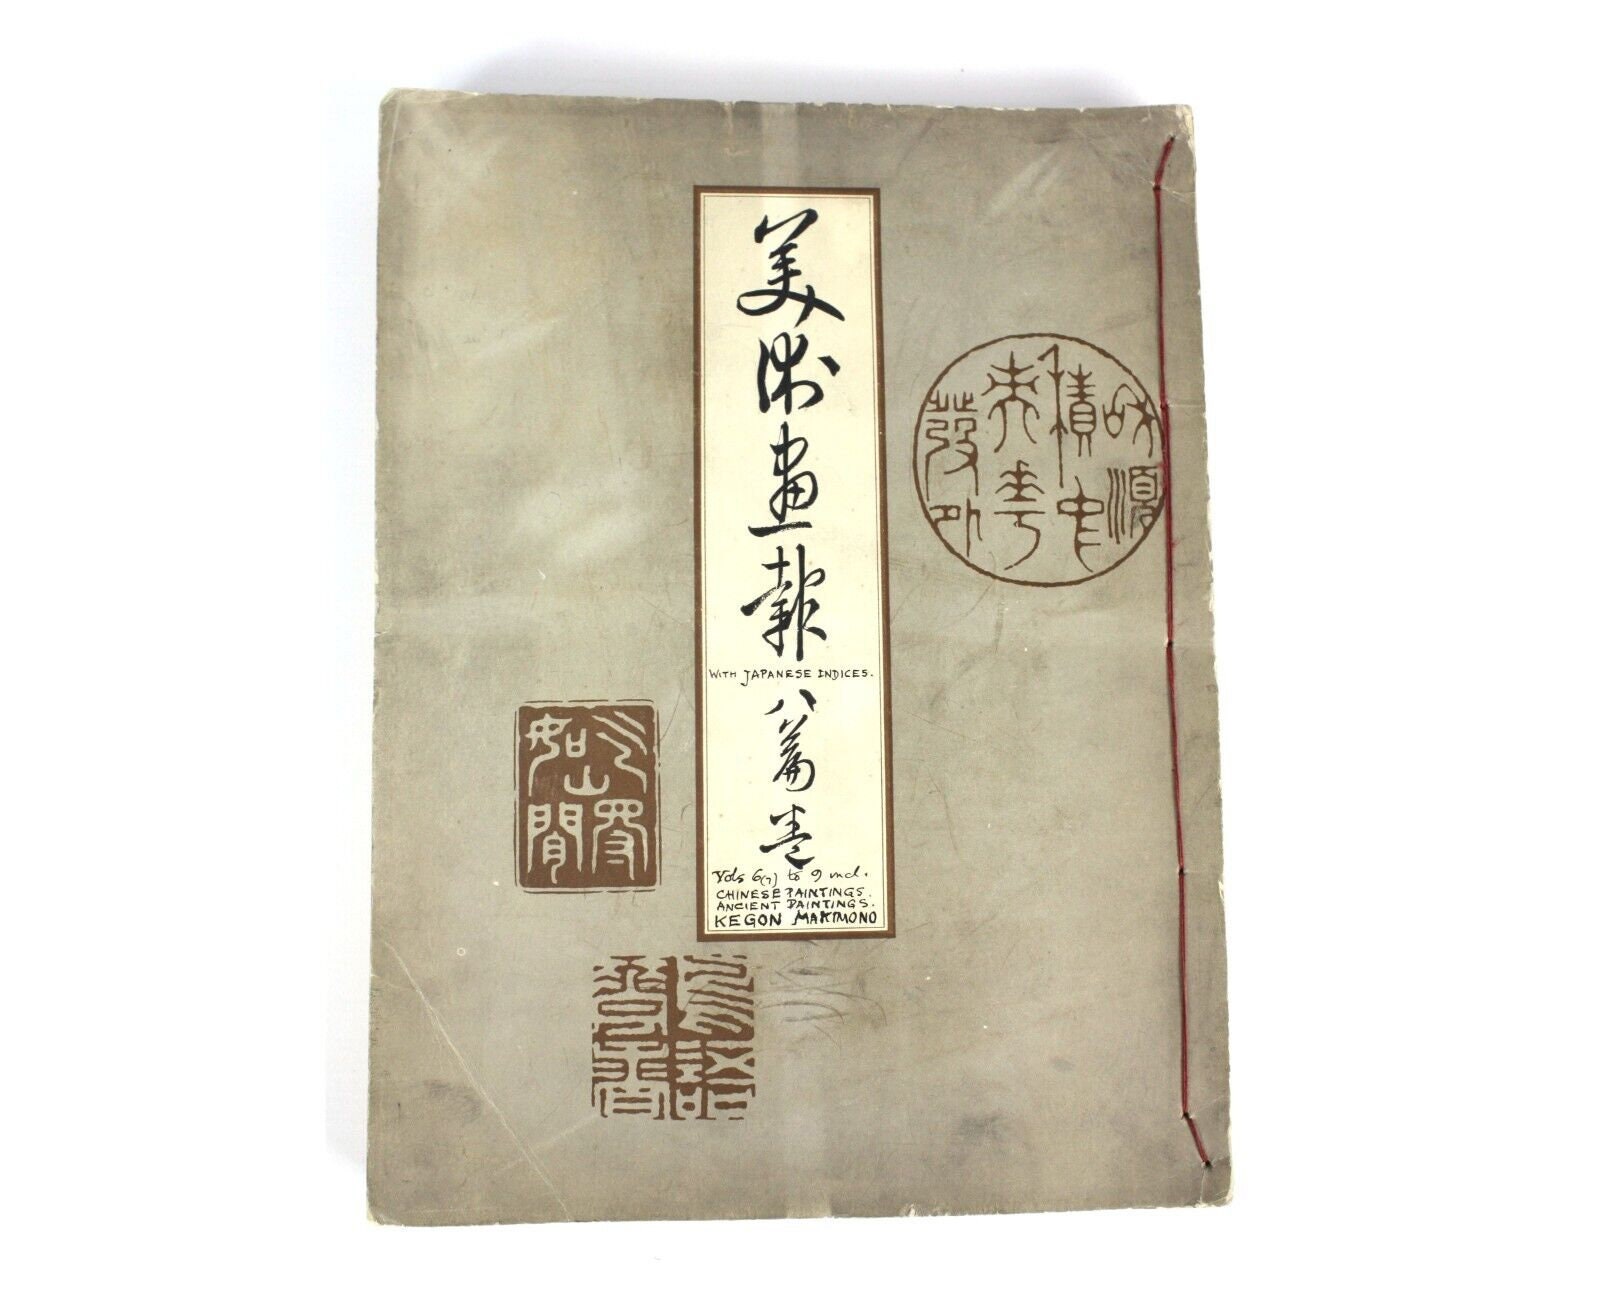 美術畫報
WITH JAPANESE INDICES.
八篇卷
Vols 6(7) to 9 incl.
CHINESE PAINTINGS.
ANCIENT PAINTINGS.
KEGON MAKIMONO
和順
積中
英華
發外